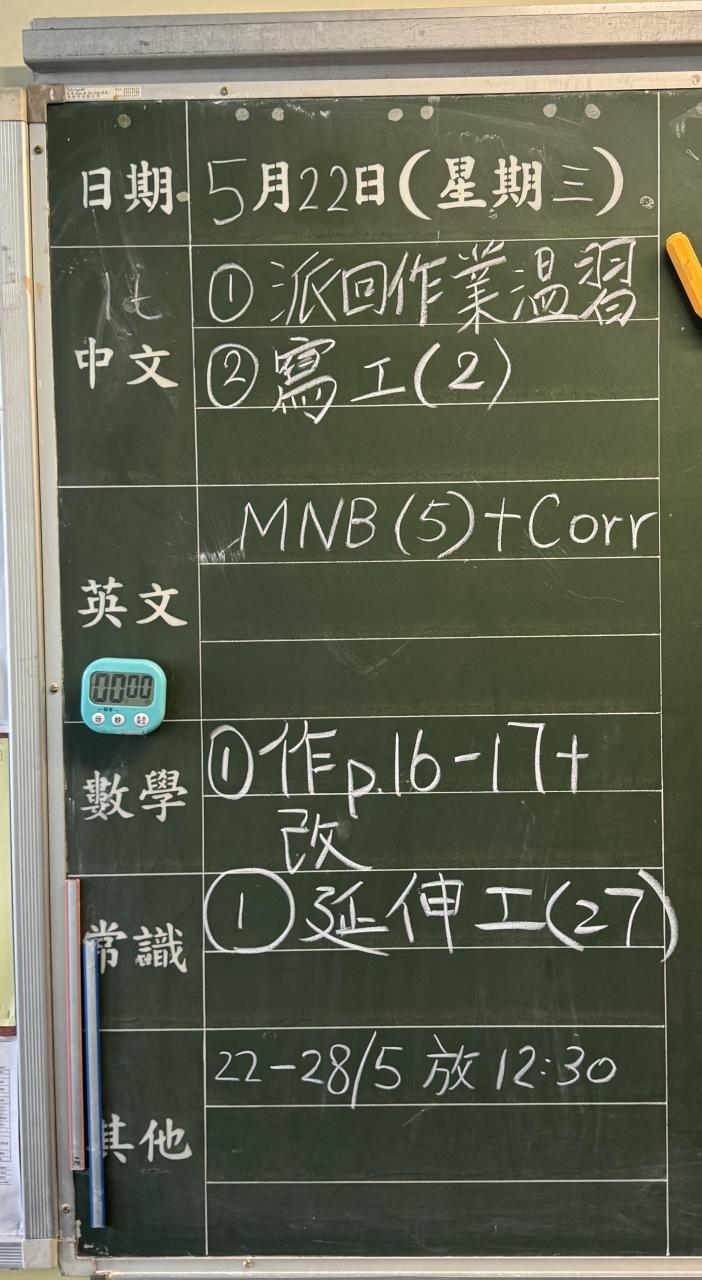 日期 5月22日(星期三)
中文 ①派回作業溫習
②寫工(2)
英文 MNB(5)+Corr
00:00
分 秒
數學 ①作p.16-17+
改
常識 ①延伸工(27)
其他 22-28/5 放12:30